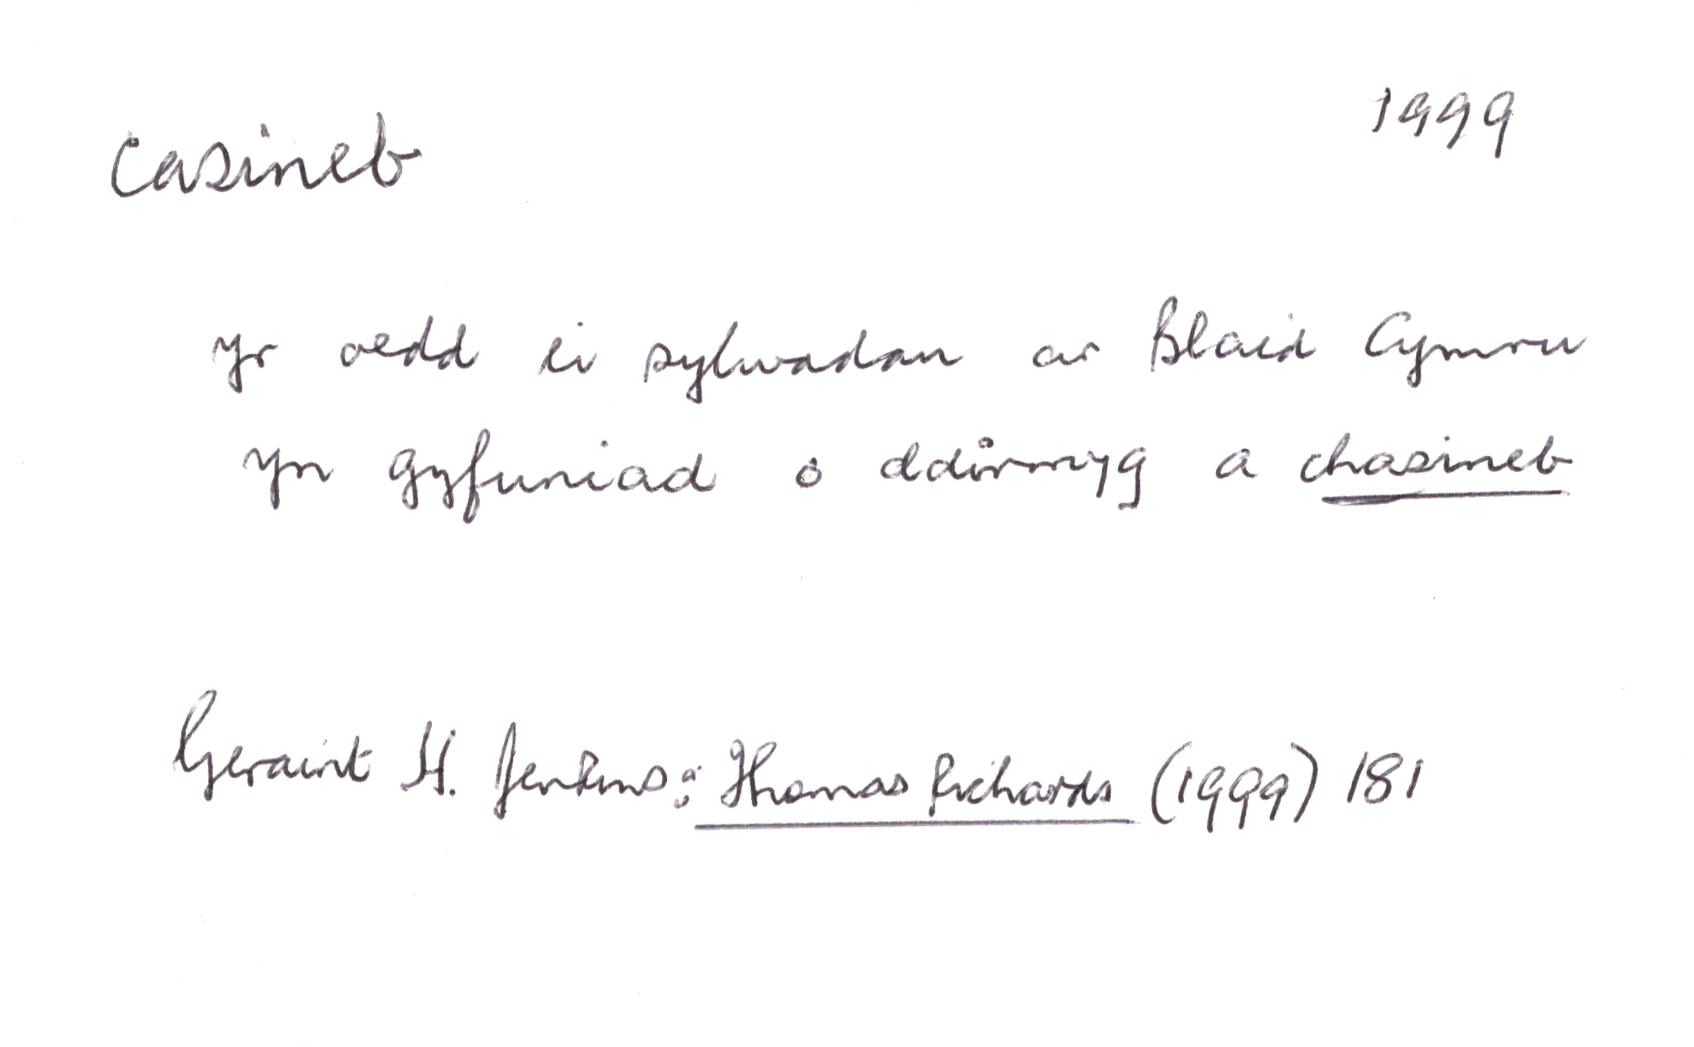 casineb 1999
yr oedd ei sylwadau ar Blaid Cymru
yn gyfuniad o ddirmyg a chasineb
Geraint H. Jenkins: Thomas Richards (1999) 181